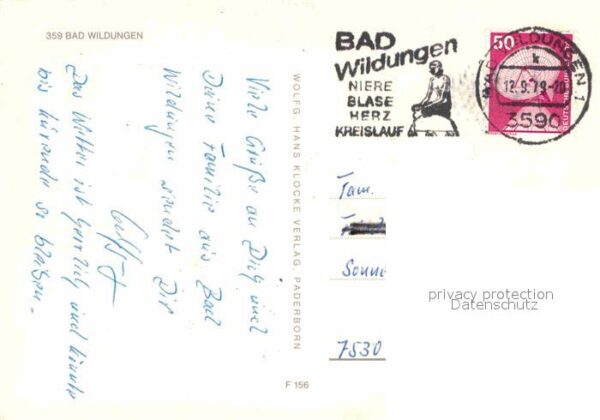 359 BAD WILDUNGEN
Viele Grüße an Dich und
Deine Familie aus Bad
Wildungen sendet Dir
Das Wetter ist herrlich und könnte
bis so bleiben.
WOLFG. HANS KLOCKE VERLAG, PADERBORN
F 156
BAD
Wildungen
NIERE
BLASE
HERZ
KREISLAUF
50
DEUTSCHE BUNDESPOST
BAD WILDUNGEN 1
k
12.9.79-20
3590
Fam.
Sonne
7530
privacy protection
Datenschutz